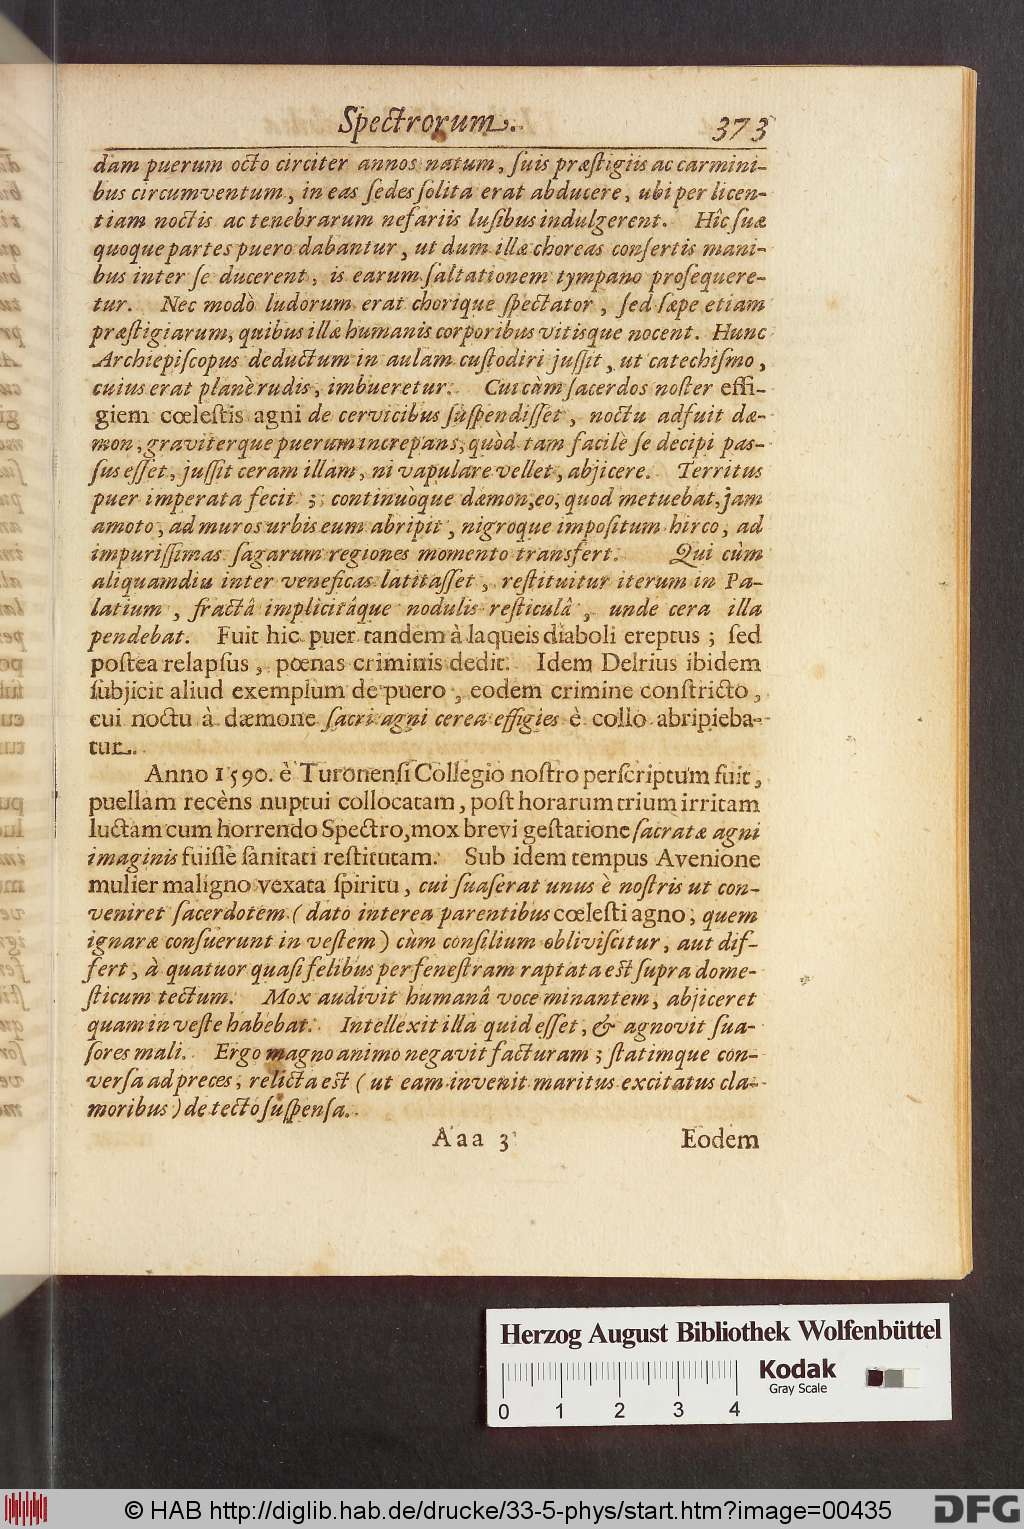 Spectrorum. 373
dam puerum octo circiter annos natum, ſuis præſtigiis ac carmini-
bus circumventum, in eas ſedes ſolita erat abducere, ubi per licen-
tiam noctis ac tenebrarum nefariis luſibus indulgerent. Hîc ſuæ
quoque partes puero dabantur, ut dum illæ choreas conſertis mani-
bus inter ſe ducerent, is earum ſaltationem tympano proſequere-
tur. Nec modò ludorum erat chorique ſpectator, ſed ſæpe etiam
præſtigiarum, quibus illæ humanis corporibus vitisque nocent. Hunc
Archiepiſcopus deductum in aulam cuſtodiri juſſit, ut catechiſmo,
cuius erat planè rudis, imbueretur. Cui cùm ſacerdos noſter effi-
giem cœleſtis agni de cervicibus ſuſpendiſſet, noctu adfuit dæ-
mon, graviterque puerum increpans, quòd tam facilè ſe decipi paſ-
ſus eſſet, juſſit ceram illam, ni vapulare vellet, abjicere. Territus
puer imperata fecit; continuòque dæmon, eo, quod metuebat, jam
amoto, ad muros urbis eum abripit, nigroque impoſitum hirco, ad
impuriſſimas ſagarum regiones momento transfert. Qui cùm
aliquamdiu inter veneficas latitaſſet, reſtituitur iterum in Pa-
latium, fractâ implicitâque nodulis reſticulâ, unde cera illa
pendebat. Fuit hic puer tandem à laqueis diaboli ereptus; ſed
poſtea relapſus, pœnas criminis dedit. Idem Delrius ibidem
ſubjicit aliud exemplum de puero, eodem crimine conſtricto,
cui noctu à dæmone ſacri agni cerea effigies è collo abripieba-
tur.
Anno 1590. è Turonenſi Collegio noſtro perſcriptum fuit,
puellam recèns nuptui collocatam, poſt horarum trium irritam
luctam cum horrendo Spectro, mox brevi geſtatione ſacratæ agni
imaginis fuiſſe ſanitati reſtitutam. Sub idem tempus Avenione
mulier maligno vexata ſpiritu, cui ſuaſerat unus è noſtris ut con-
veniret ſacerdotem (dato interea parentibus cœleſti agno, quem
ignaræ conſuerunt in veſtem) cùm conſilium obliviſcitur, aut dif-
fert, à quatuor quaſi felibus per feneſtram raptata eſt ſupra dome-
ſticum tectum. Mox audivit humanâ voce minantem, abjiceret
quam in veſte habebat. Intellexit illa quid eſſet, & agnovit ſua-
ſores mali. Ergo magno animo negavit facturam; ſtatimque con-
verſa ad preces, relicta eſt (ut eam invenit maritus excitatus cla-
moribus) de tecto ſuſpenſa.
Aaa 3 Eodem
Herzog August Bibliothek Wolfenbüttel
Kodak
Gray Scale
0 1 2 3 4
© HAB http://diglib.hab.de/drucke/33-5-phys/start.htm?image=00435
DFG